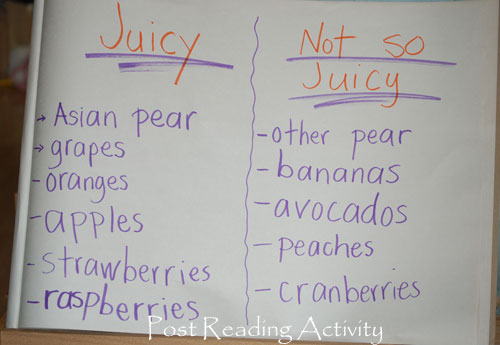 Juicy
→ Asian pear
→ grapes
- oranges
- apples
- strawberries
- raspberries
Not so
Juicy
- other pear
- bananas
- avocados
- peaches
- cranberries
Post Reading Activity